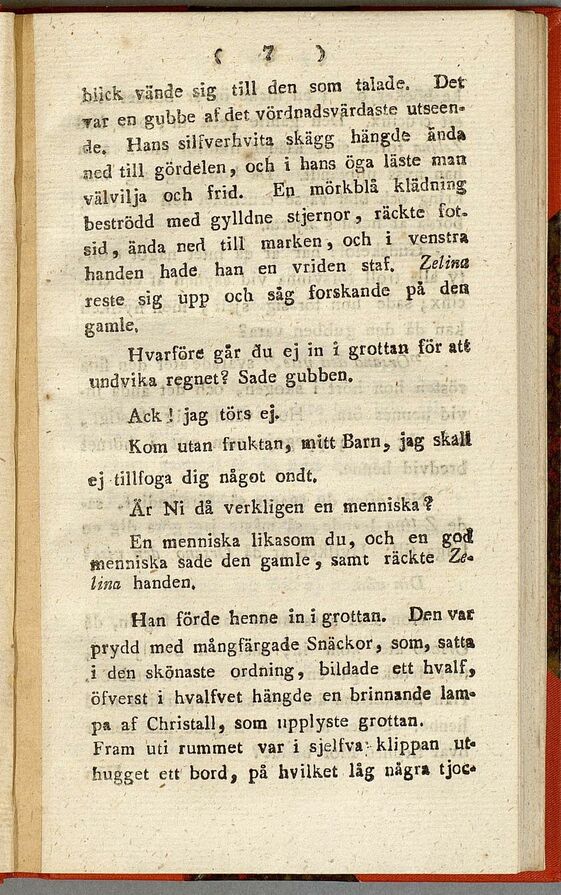 ( 7 )
blick vände sig till den som talade. Det
var en gubbe af det vördnadsvärdaste utseen-
de. Hans silfverhvita skägg hängde ända
ned till gördelen, och i hans öga läste man
välvilja och frid. En mörkblå klädning
beströdd med gylldne stjernor, räckte fot-
sid, ända ned till marken, och i venstra
handen hade han en vriden staf. Zelina
reste sig upp och såg forskande på den
gamle.
Hvarföre går du ej in i grottan för att
undvika regnet? Sade gubben.
Ack! jag törs ej.
Kom utan fruktan, mitt Barn, jag skall
ej tillfoga dig något ondt.
Är Ni då verkligen en menniska?
En menniska likasom du, och en god
menniska sade den gamle, samt räckte Ze-
lina handen.
Han förde henne in i grottan. Den var
prydd med mångfärgade Snäckor, som, satta
i den skönaste ordning, bildade ett hvalf,
öfverst i hvalfvet hängde en brinnande lam-
pa af Christall, som upplyste grottan.
Fram uti rummet var i sjelfva klippan ut-
hugget ett bord, på hvilket låg några tjoc-